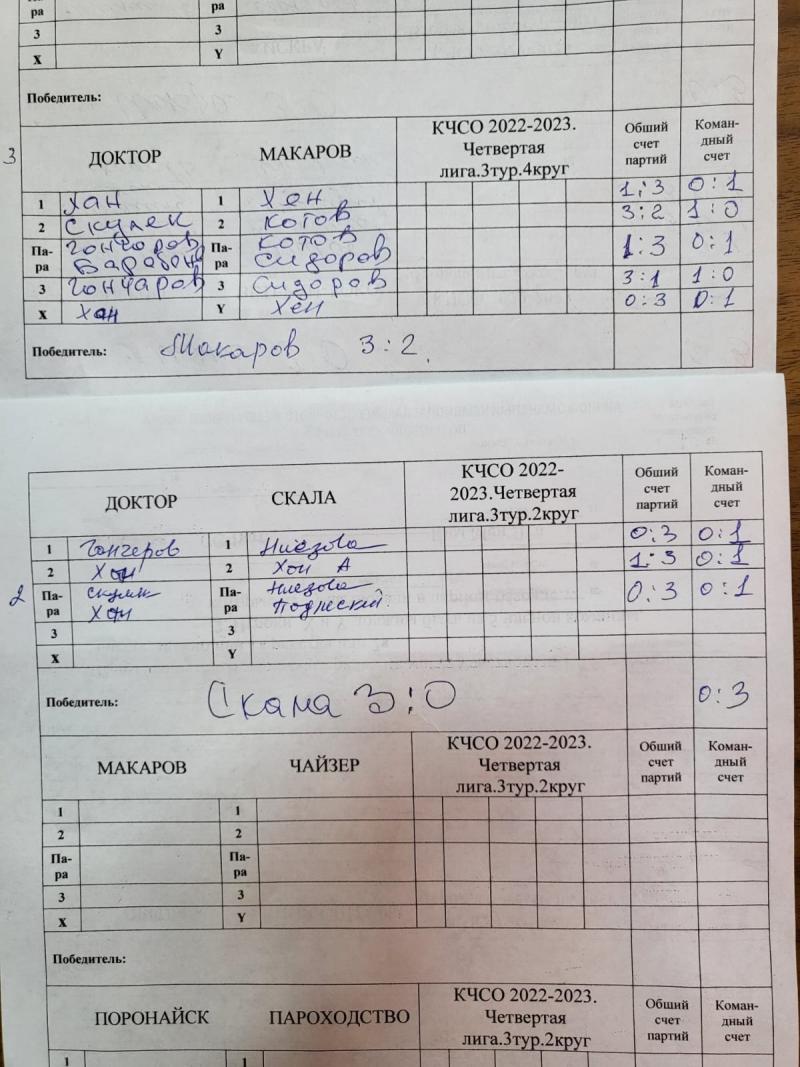 Па-
ра
ра
3 3
X Y
Победитель:
3
ДОКТОР МАКАРОВ КЧСО 2022-2023. Четвертая лига.3тур.4круг Общий счет партий Коман-дный счет
1 Хан 1 Хен 1:3 0:1
2 Скулек 2 Котов 3:2 1:0
Па-ра Гончаров 
Па-ра Котов Сидоров 1:3 0:1
3 Гончаров 3 Сидоров 3:1 1:0
X Хан Y Хен 0:3 0:1
Победитель: Макаров 3:2.
ДОКТОР СКАЛА КЧСО 2022-2023.Четвертая лига.3тур.2круг Общий счет партий Коман-дный счет
1 Гончеров 1 Ниезова 0:3 0:1
2 Хан 2 Хан А 1:3 0:1
2
Па-ра Хан Па-ра Ниезова 0:3 0:1
3 3
X Y
Победитель: Скала 3:0 0:3
МАКАРОВ ЧАЙЗЕР КЧСО 2022-2023. Четвертая лига.3тур.2круг Общий счет партий Коман-дный счет
1 1
2 2
Па-ра Па-ра
3 3
X Y
Победитель:
ПОРОНАЙСК ПАРОХОДСТВО КЧСО 2022-2023. Четвертая лига.3тур.2круг Общий счет партий Коман-дный счет
1 1